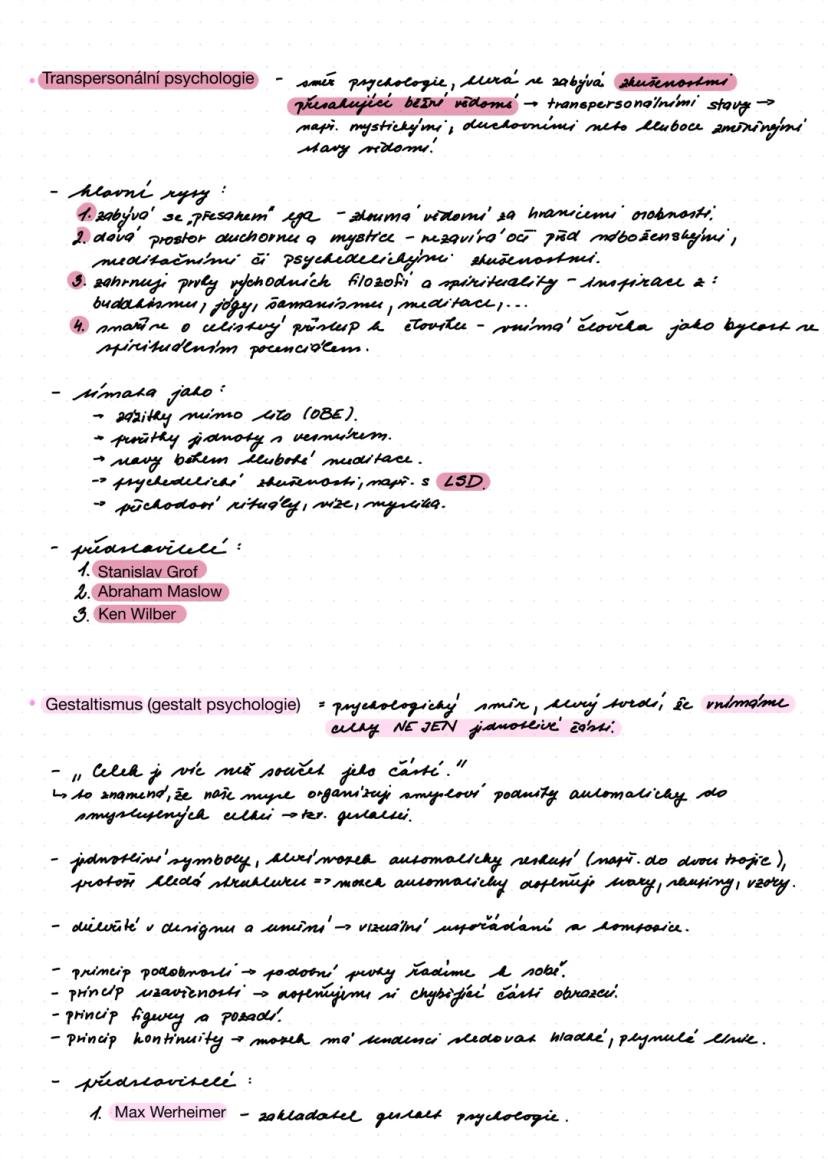 • Transpersonální psychologie - směr psychologie, která se zabývá zkušenostmi
přesahující běžné vědomí → transpersonálními stavy →
např. mystickými, duchovními nebo hluboce změněnými
stavy vědomí.
- hlavní rysy:
1. zabývá se „přesahem" ega - zkoumá vědomí za hranicemi osobnosti.
2. dává prostor duchovnu a mystice - nezavírá oči před náboženskými,
meditačními či psychedelickými zkušenostmi.
3. zahrnuje prvky východních filozofií a spirituality - inspirace z:
buddhismu, jógy, šamanismu, meditace,...
4. snaží se o celistvý přístup k člověku - vnímá člověka jako bytost se
spirituálním potenciálem.
- témata jako:
→ zážitky mimo tělo (OBE).
→ prožitky jednoty s vesmírem.
→ stavy během hluboké meditace.
→ psychedelické zkušenosti, např. s LSD.
→ přechodové rituály, vize, mystika.
- představitelé:
1. Stanislav Grof
2. Abraham Maslow
3. Ken Wilber
• Gestaltismus (gestalt psychologie) = psychologický směr, který tvrdí, že vnímáme
celky NE JEN jednotlivé části.
- „Celek je víc než součet jeho částí."
↳ to znamená, že naše mysl organizuje smyslové podněty automaticky do
smysluplných celků → tzv. gestaltů.
- jednotlivé symboly, které mozek automaticky seskupí (např. do dvou trojic),
protože hledá strukturu => mozek automaticky doplňuje tvary, skupiny, vzory.
- důležité v designu a umění → vizuální uspořádání a kompozice.
- princip podobnosti → podobné prvky řadíme k sobě.
- princip uzavřenosti → doplňujeme si chybějící části obrazců.
- princip figury a pozadí.
- princip kontinuity → mozek má tendenci sledovat hladké, plynulé linie.
- představitelé:
1. Max Werheimer - zakladatel gestalt psychologie.